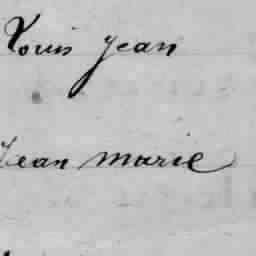 Louis Jean
Jean Marie